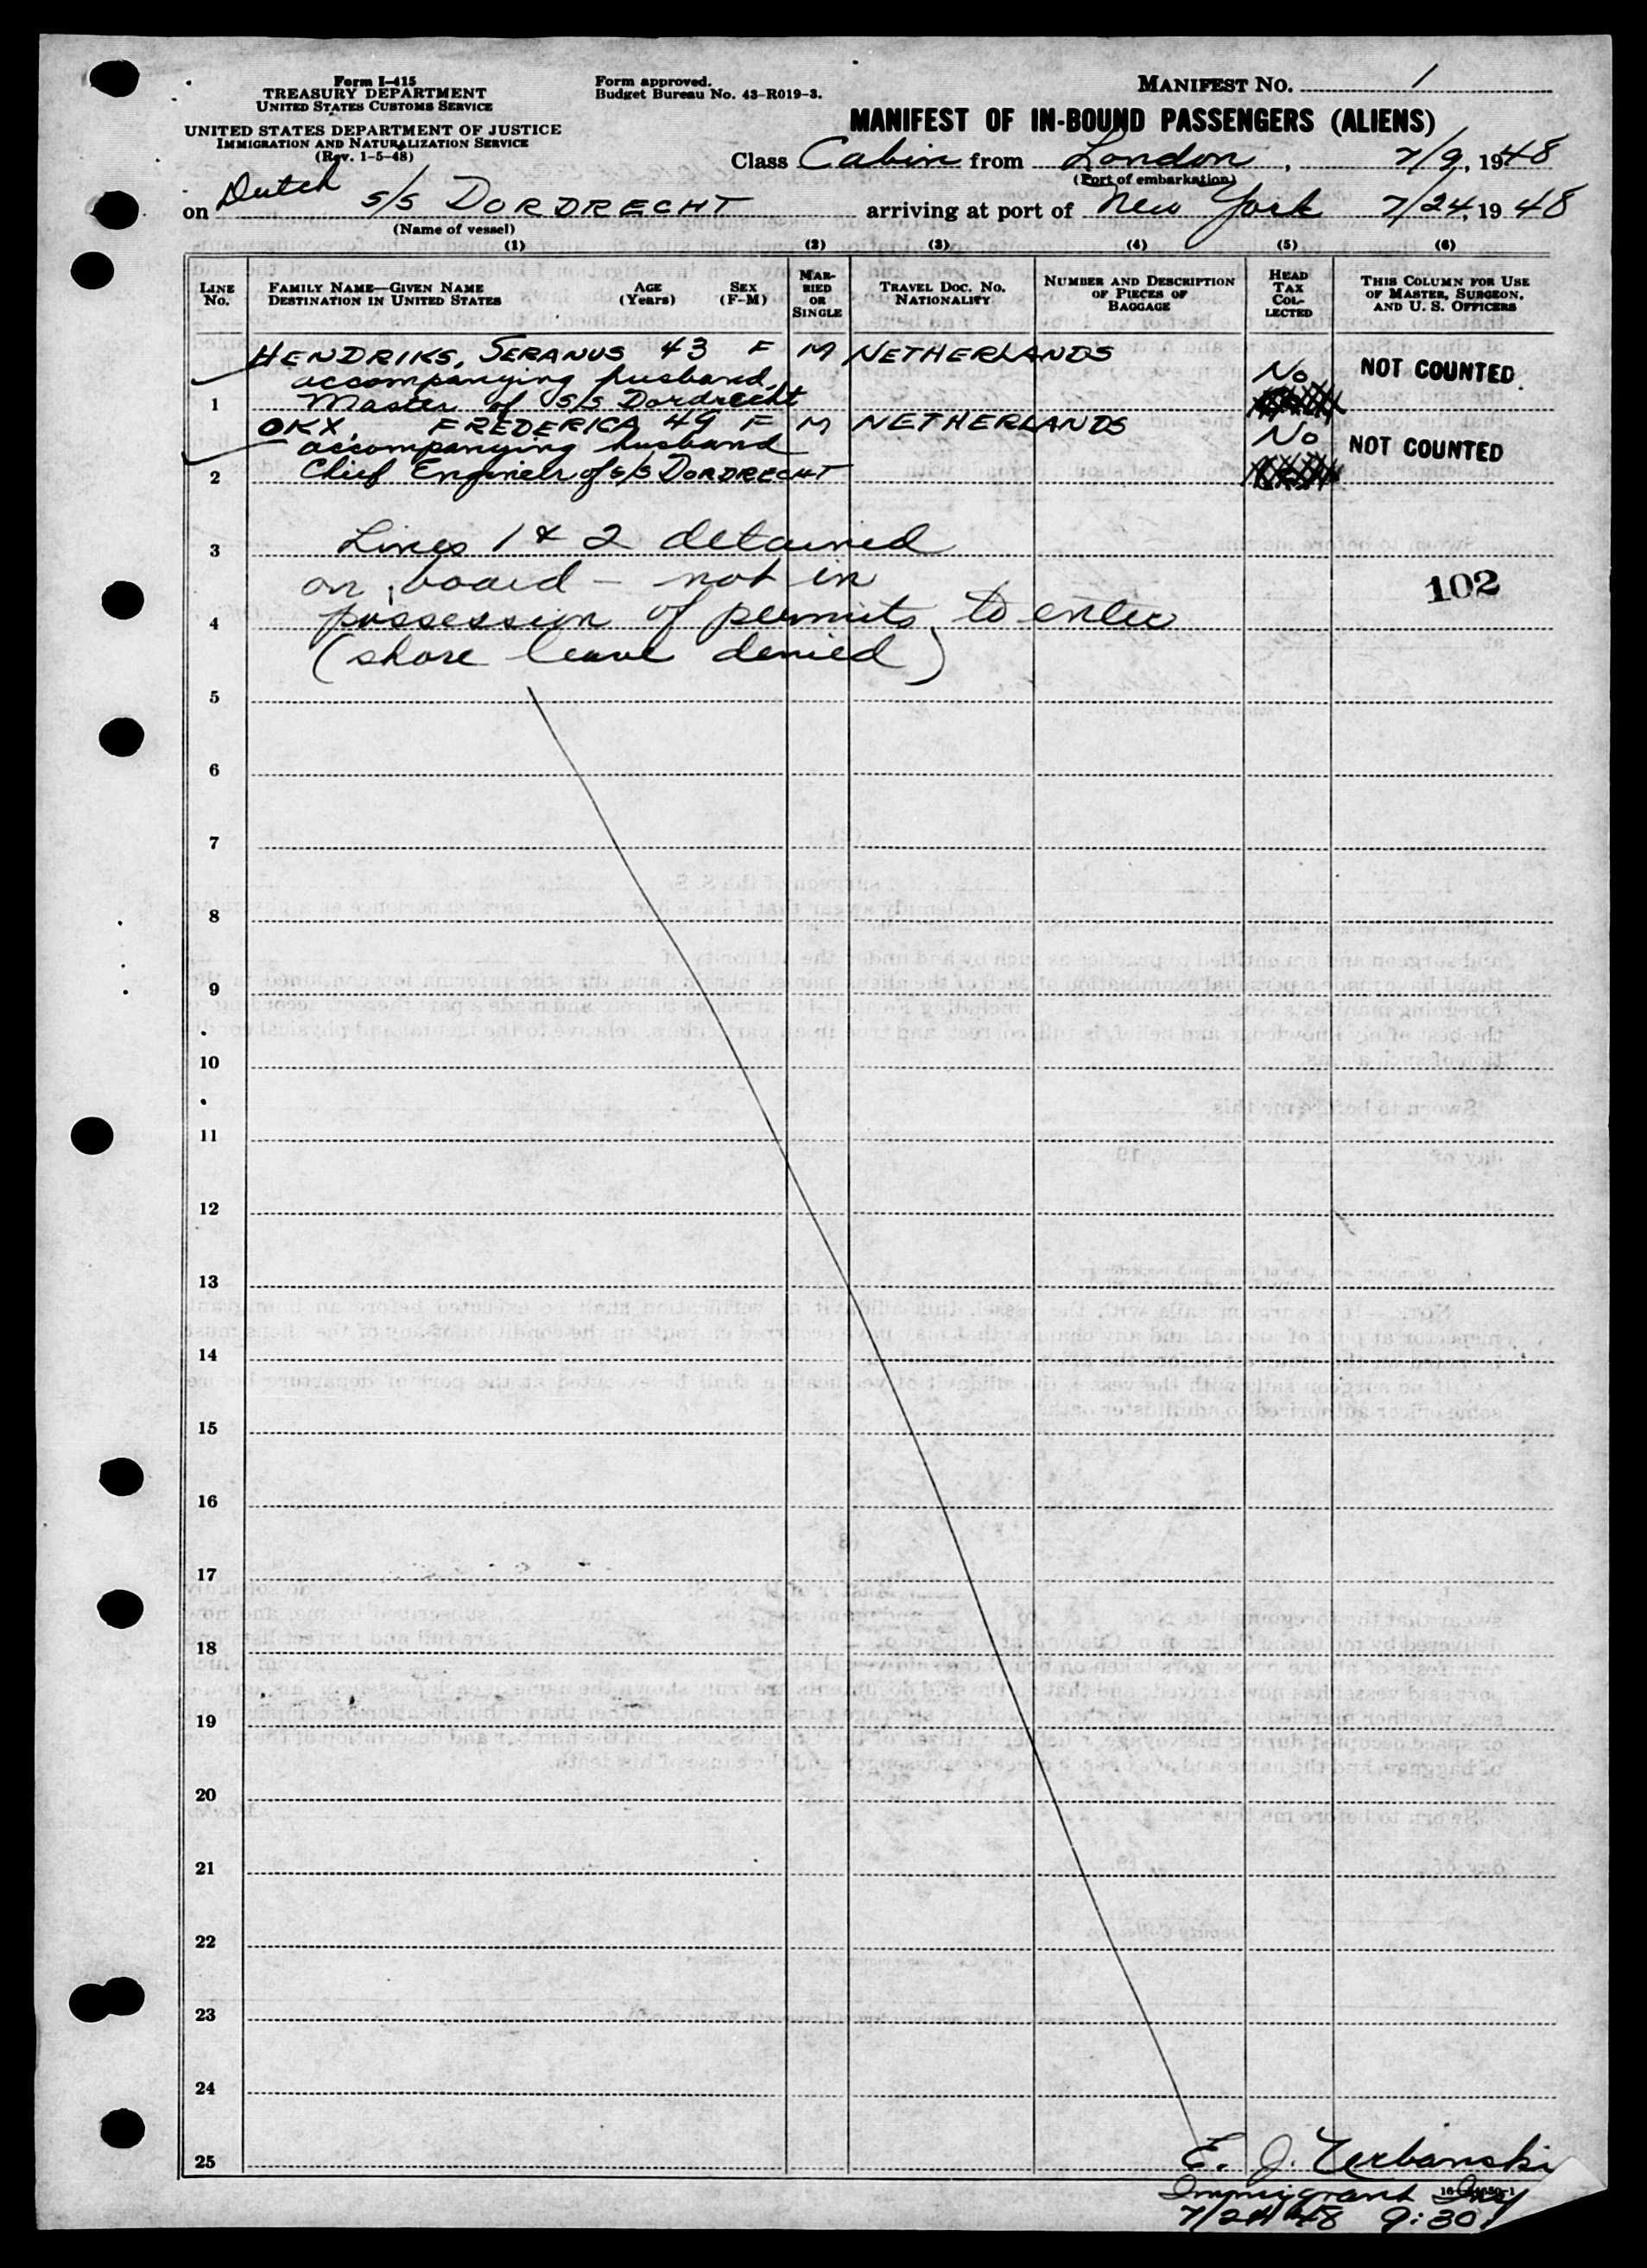 Form I-415
TREASURY DEPARTMENT
UNITED STATES CUSTOMS SERVICE
UNITED STATES DEPARTMENT OF JUSTICE
IMMIGRATION AND NATURALIZATION SERVICE
(Rev. 1-5-48)
Form approved.
Budget Bureau No. 43-R019-3.
MANIFEST No. 1
MANIFEST OF IN-BOUND PASSENGERS (ALIENS)
Class Cabin from London, 7/9, 1948
(Port of embarkation)
on Dutch S/S DORDRECHT arriving at port of New York 7/24, 1948
(Name of vessel)
(1) (2) (3) (4) (5) (6)
LINE No.
FAMILY NAME—GIVEN NAME
DESTINATION IN UNITED STATES
AGE (Years)
SEX (F-M)
MARRIED OR SINGLE
TRAVEL DOC. No. NATIONALITY
NUMBER AND DESCRIPTION OF PIECES OF BAGGAGE
HEAD TAX COLLECTED
THIS COLUMN FOR USE OF MASTER, SURGEON, AND U. S. OFFICERS
HENDRIKS, SERANUS 43 F M NETHERLANDS No NOT COUNTED
accompanying husband,
1 Master of S/S Dordrecht
OKX, FREDERICA 49 F M NETHERLANDS No NOT COUNTED
accompanying husband
2 Chief Engineer of S/S DORDRECHT
3 Lines 1 & 2 detained
on board - not in
102
4 possession of permits to enter
(shore leave denied)
5
6
7
8
9
10
11
12
13
14
15
16
17
18
19
20
21
22
23
24
25
E. J. Urbanski
Immigrant Insp
7/24/48 9:30